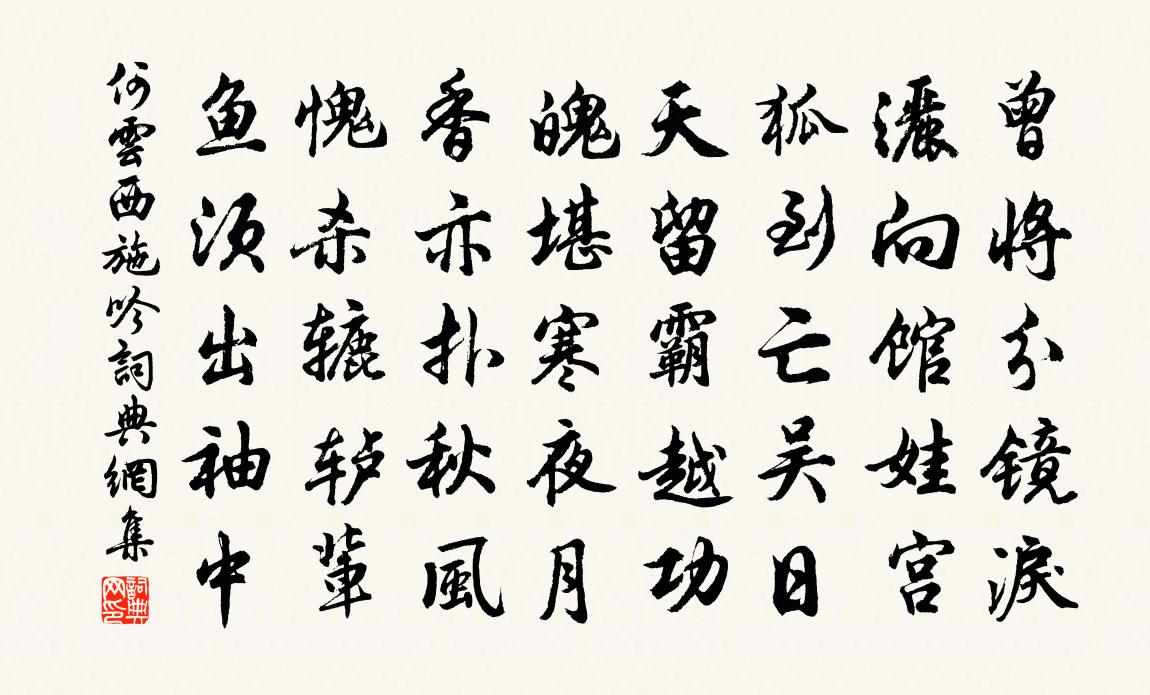 曾将分镜淚
灑向馆娃宫
狐到亡吴日
天留霸越功
魄堪寒夜月
香亦扑秋風
愧杀辘轳輩
鱼须出袖中
何雲西施吟詞典網集
詞典網印